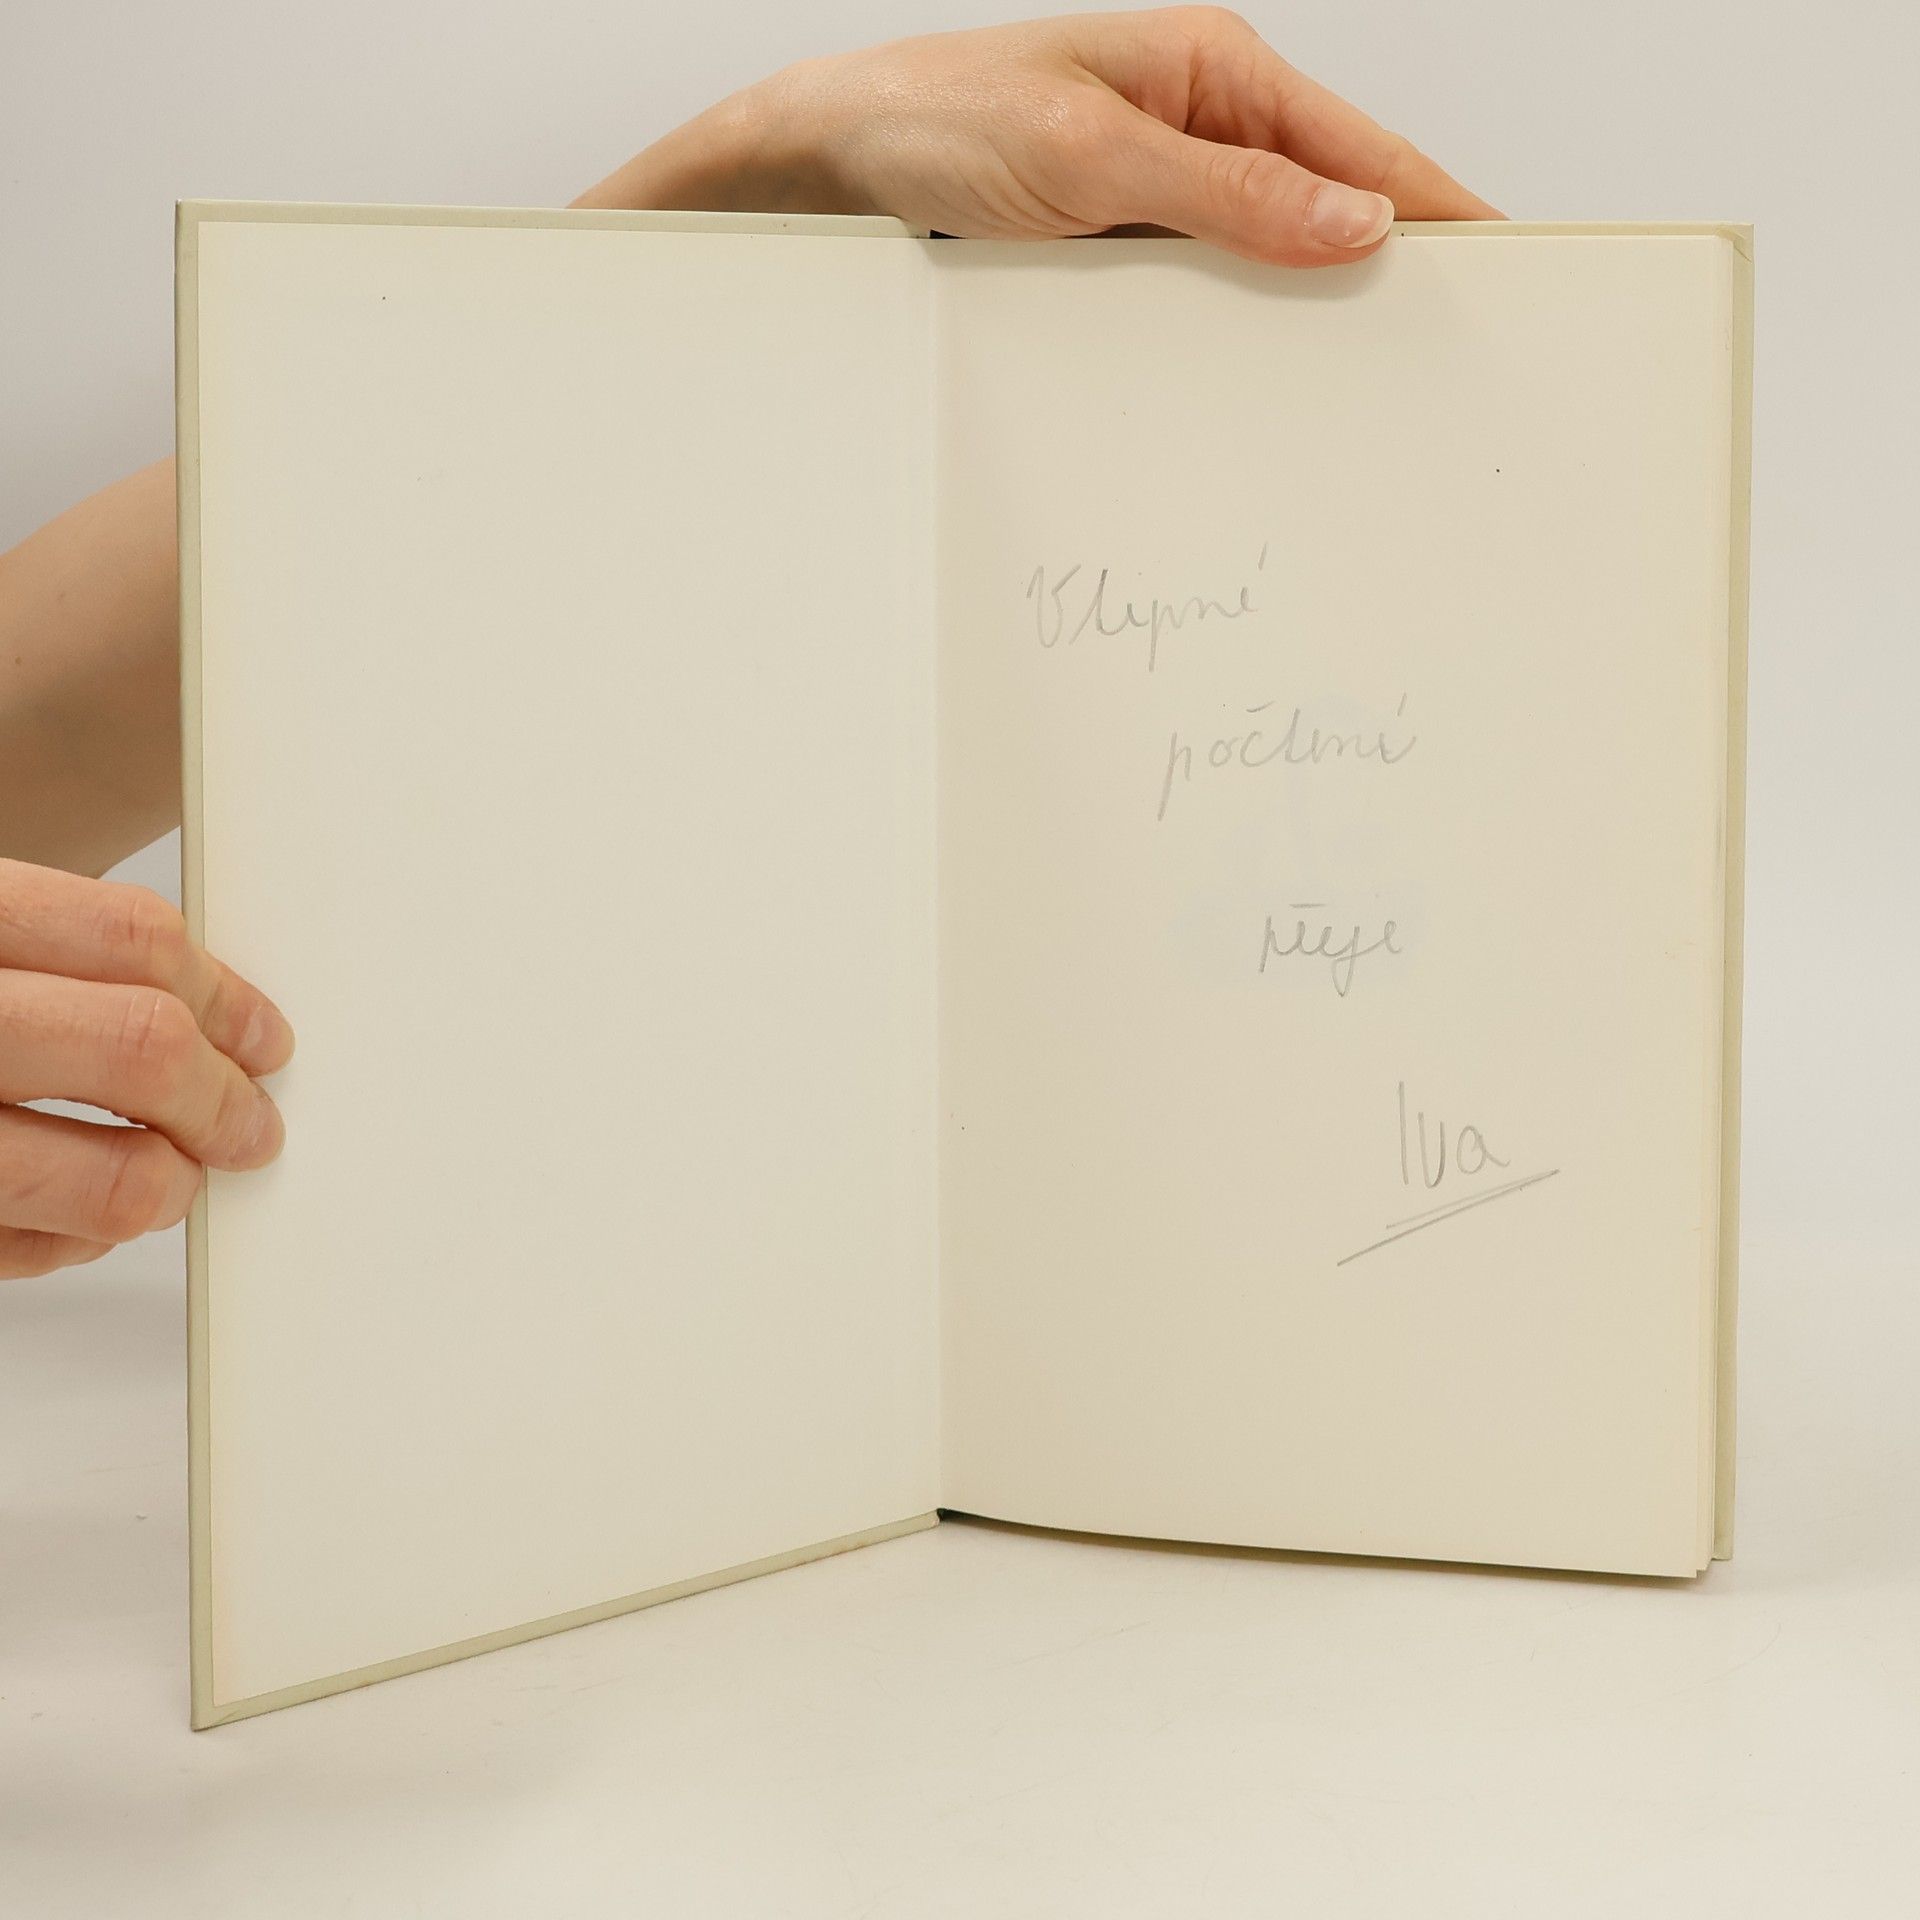 Vtipné
počtení
přeje
Iva